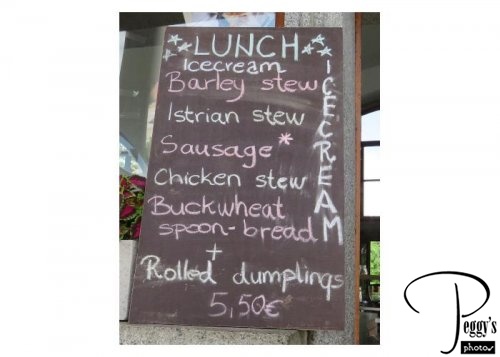 LUNCH
Icecream
Barley stew
Istrian stew
Sausage*
Chicken stew
Buckwheat
spoon-bread
+
Rolled dumplings
5,50€
ICECREAM
Peggy's
photos